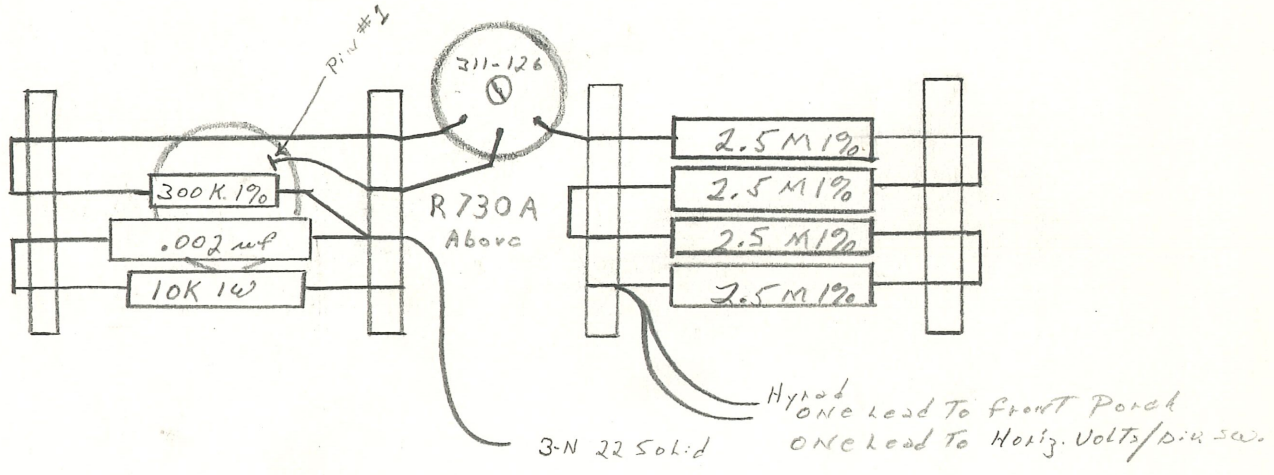 Pin #1
311-126
300K 1%
.002 uf
10K 1W
R730A
Above
2.5M1%
2.5M1%
2.5M1%
2.5M1%
3-N 22 Solid
Hyrad
ONE Lead To front Porch
ONE Lead To Horiz. Volts/Div sw.